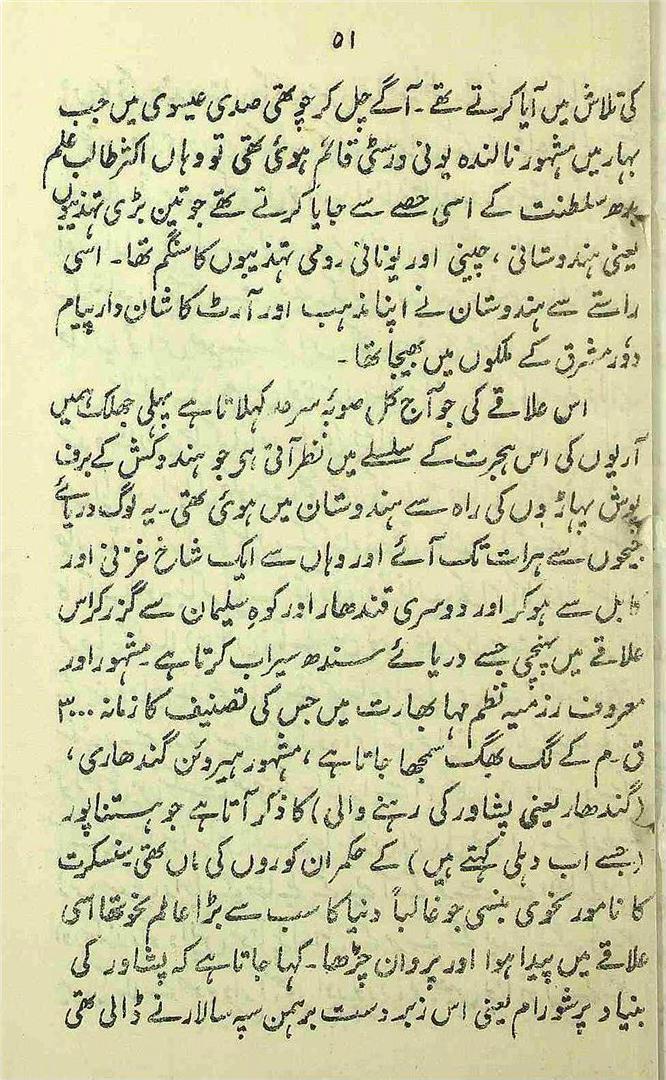 ۵۱
کی تلاش میں آیا کرتے تھے۔ آگے چل کر چوتھی صدی عیسوی میں جب
بہار میں مشہور نالندہ یونی ورسٹی قائم ہوئی تھی تو وہاں اکثر طالب علم
بدھ سلطنت کے اسی حصے سے جایا کرتے تھے جو تین بڑی تہذیبوں
یعنی ہندوستانی ، چینی اور یونانی رومی تہذیبوں کا سنگم تھا۔ اسی
راستے سے ہندوستان نے اپنا مذہب اور آرٹ کا شان دار پیام
دور مشرق کے ملکوں میں بھیجا تھا۔
اس علاقے کی جو آج کل صوبۂ سرحد کہلاتا ہے پہلی جھلک ہمیں
آریوں کی اس ہجرت کے سلسلے میں نظر آتی ہی جو ہندوکش کے برف
پوش پہاڑوں کی راہ سے ہندوستان میں ہوئی تھی۔ یہ لوگ دریائے
جیحوں سے ہرات تک آئے اور وہاں سے ایک شاخ غزنی اور
کابل سے ہو کر اور دوسری قندھار اور کوہِ سلیمان سے گزر کر اس
علاقے میں پہنچی جسے دریائے سندھ سیراب کرتا ہے۔ مشہور اور
معروف رزمیہ نظم مہا بھارت میں جس کی تصنیف کا زمانہ ۳۰۰۰
ق۔م کے لگ بھگ سمجھا جاتا ہے ، مشہور ہیروئن گندھاری ،
(گندھار یعنی پشاور کی رہنے والی) کا ذکر آتا ہے جو ہستناپور
(جسے اب دہلی کہتے ہیں) کے حکمران کوروں کی ماں تھی۔ سنسکرت
کا نامور نحوی پنسی جو غالباً دنیا کا سب سے بڑا عالم نحو تھا اسی
علاقے میں پیدا ہوا اور پروان چڑھا۔ کہا جاتا ہے کہ پشاور کی
بنیاد پرشورام یعنی اس زبردست برہمن سپہ سالار نے ڈالی تھی